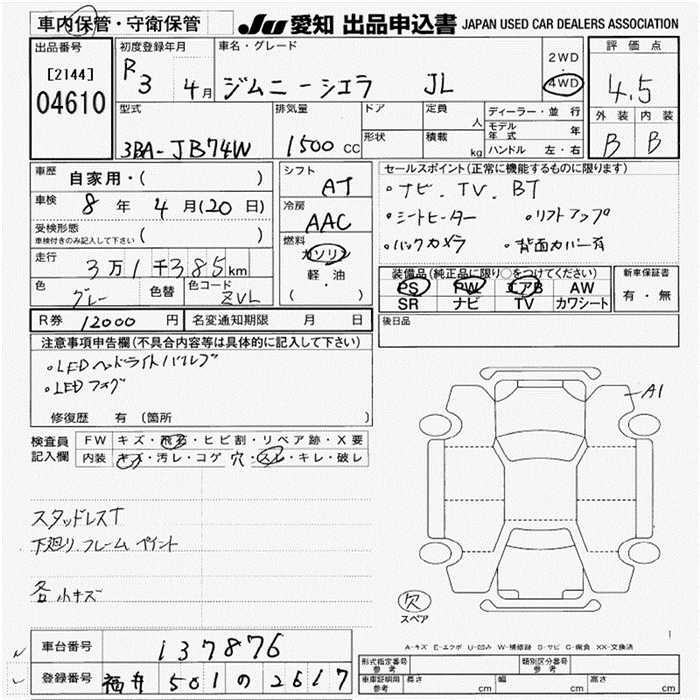 車内保管・守衛保管
JU 愛知 出品申込書 JAPAN USED CAR DEALERS ASSOCIATION
出品番号
[2144]
04610
初度登録年月
R3 4月
車名・グレード
ジムニーシエラ JL
2WD
・
4WD
評価点
4.5
外装 内装
B B
型式
3BA-JB74W
排気量
1500 CC
ドア
形状
定員 人
積載 kg
ディーラー・並行
モデル年式 年
ハンドル 左・右
車歴 自家用・( )
車検 8年 4月(20日)
受検形態
車検付きのみ記入して下さい ( )
走行 3万1千385km
色 グレー
色替
色コード ZVL
シフト AT
冷房 AAC
燃料
ガソリン
軽・油
( )
セールスポイント(正常に機能するものに限ります)
・ナビ.TV.BT
・シートヒーター ・リフトアップ
・バックカメラ ・背面カバー有
装備品(純正品に限り○をつけてください)
PS PW エアB AW
SR ナビ TV カワシート
新車保証書
有・無
R券 12000円
名変通知期限 月 日
後日品
注意事項申告欄(不具合内容等は具体的に記入して下さい)
・LEDヘッドライトバルブ
・LEDフォグ
修復歴 有 (箇所 )
検査員記入欄
FW キズ・飛石・ヒビ割・リペア跡・X要
内装 キズ・汚レ・コゲ 穴・スレ・キレ・破レ
スタッドレスT
下廻り.フレームペイント
各小キズ
A1
欠
スペア
1
A-キズ E-エクボ U-凹み W-補修跡 S-サビ C-腐食 XX-交換済
車台番号 137876
登録番号 福井 501 の 2617
形式指定番号 参考
類別区分番号 参考
車庫証明用 参考 長さ cm 幅 cm 高さ cm